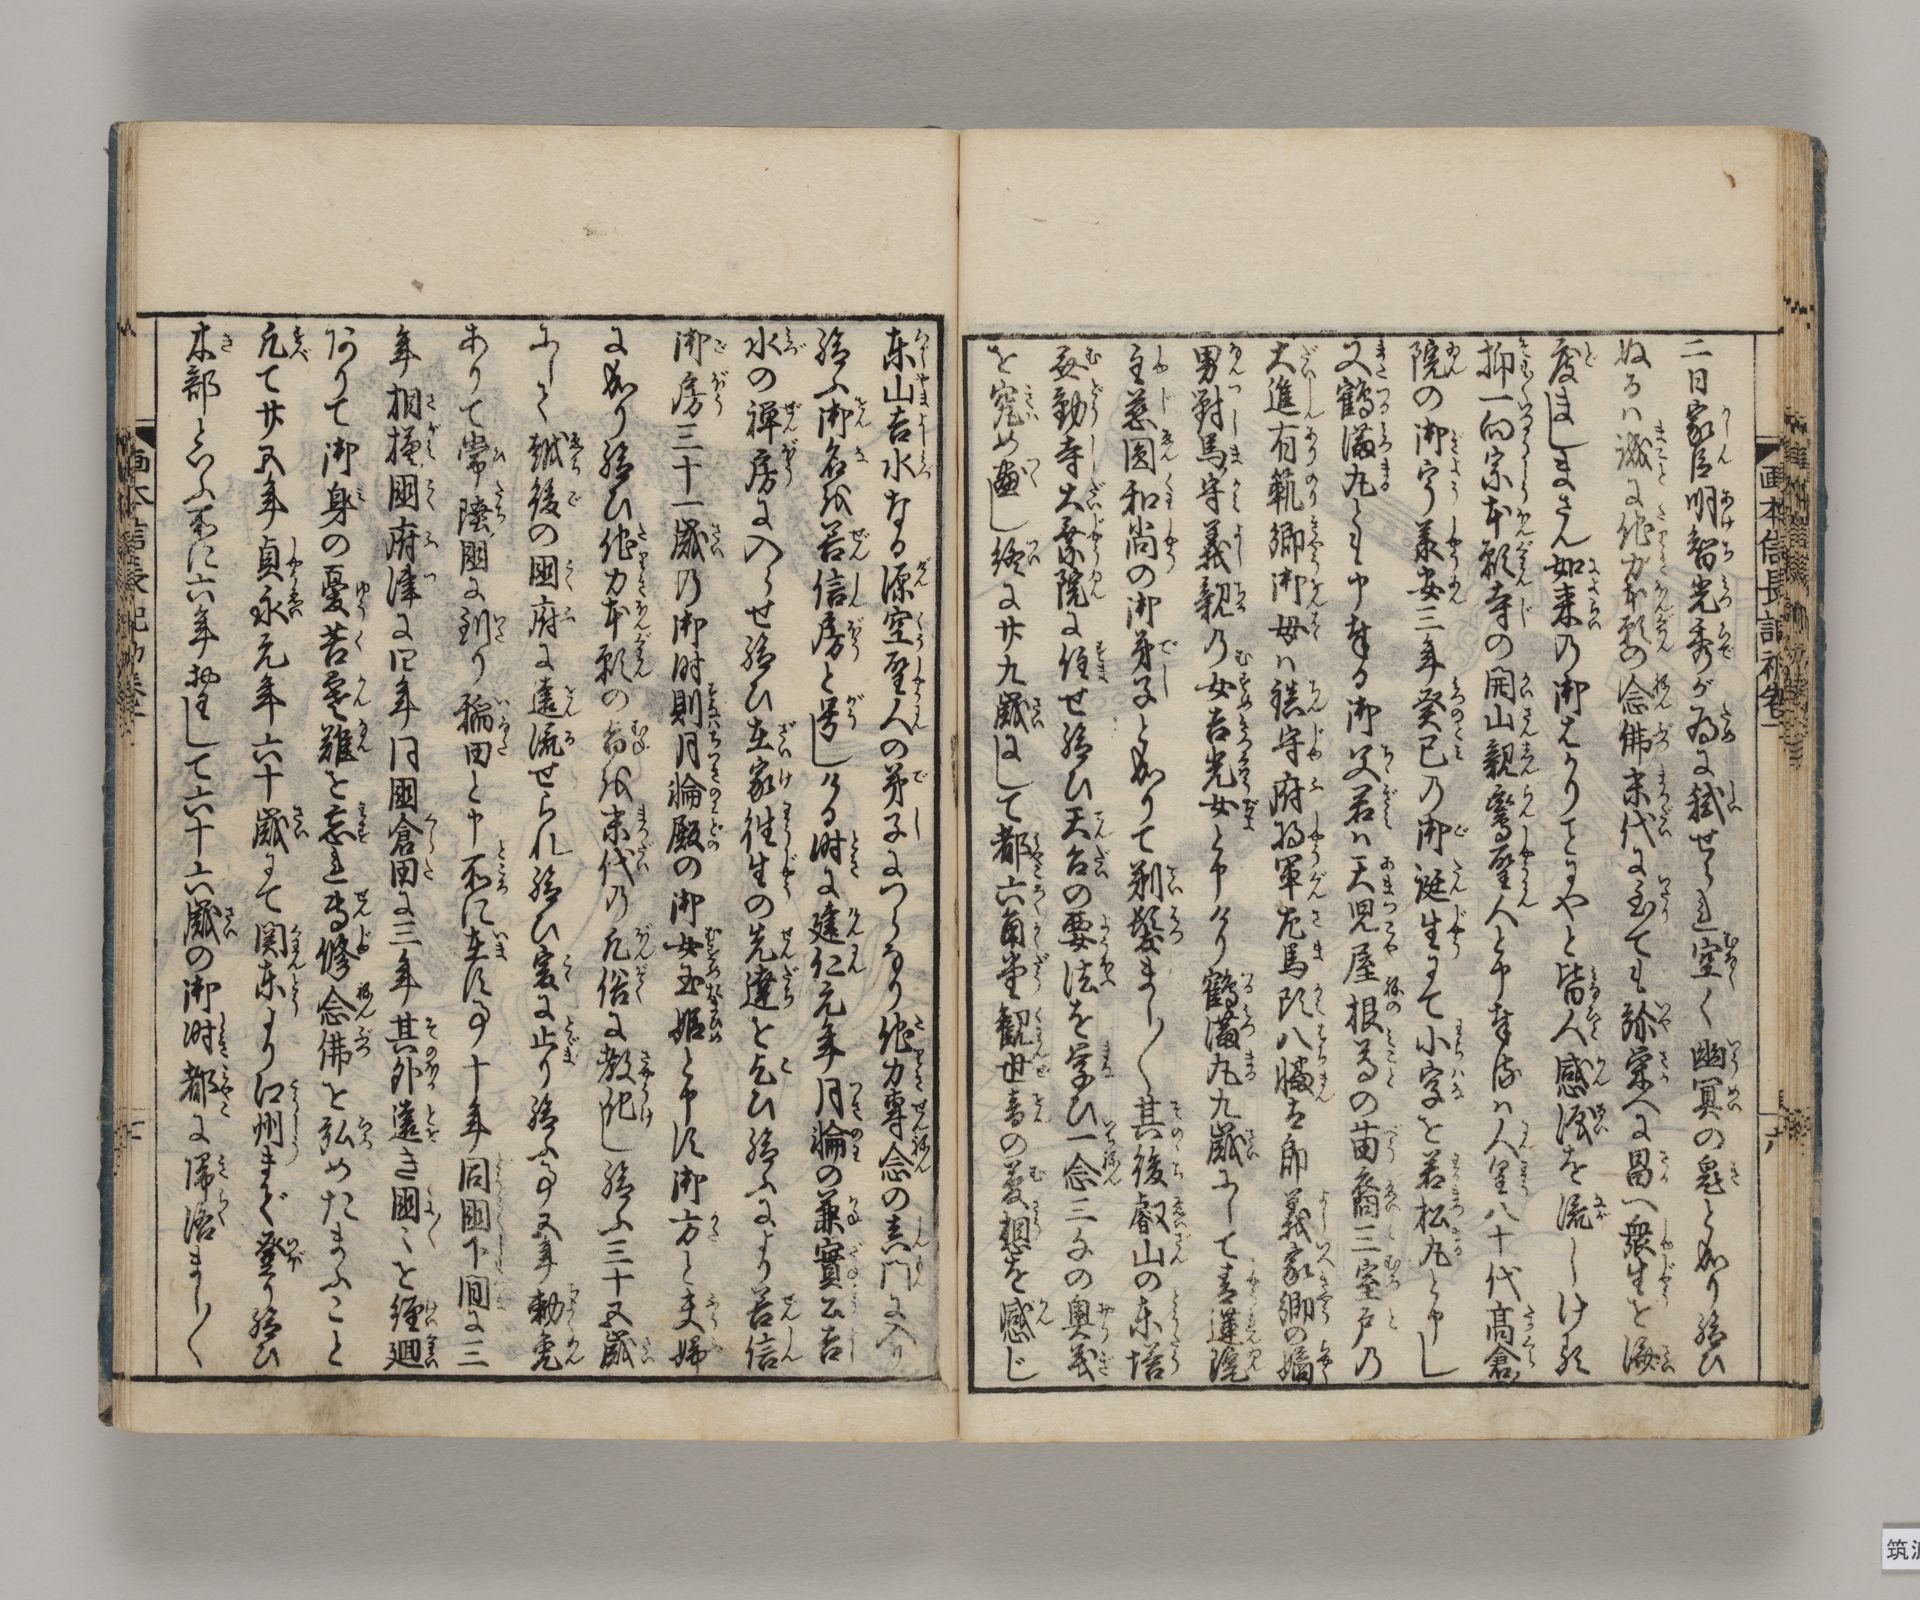 二日家臣明智光秀が為に弑せられ空く幽冥の鬼と成り給ひ
ぬるハ誠に他力本願の念佛末代に至ても弥栄へに昌へ衆生を済
度ましまさん如来の御はかりことにやと皆人感涙を流しける
抑一向宗本願寺の開山親鸞聖人と申奉るハ人皇八十代高倉
院の御宇義安三年癸巳の御誕生にて小字を若松丸と申し
又鶴満丸とも申奉る御父君ハ天児屋根尊の苗裔三室戸の
大進有範卿御母ハ鎮守府将軍左馬頭八幡太郎義家卿の嫡
男對馬守義親の女吉光女と申けり鶴満丸九歳にして青蓮院
主慈圓和尚の御弟子と成りて剃髪まし〳〵其後叡山の東塔
無動寺大乗院に住せ給ひ天台の要法を学ひ一念三千の奥義
を究め盡し終に廿九歳にして都六角堂観世音の夢想を感じ
東山吉水なる源空聖人の弟子につらなり他力専念の真門に入り
給ふ御名を善信房と号しける時に建仁元年月輪の兼實公吉
水の禅房に入らせ給ひ在家往生の先達を乞ひ給ふにより善信
御房三十一歳の御時則月輪殿の御女玉姫と申に御方と夫婦
に成り給ひ他力本願の旨を末代の凡俗に教化し給ふ三十五歳
にして越後の國府に遠流せられ給ひ爰に止り給ふ事五年勅免
ありて常陸國に到り稲田と申所に在す事十年同國下間に三
年相模國府津に四年同國倉田に三年其外遠き國々を経廻
ありて御身の憂苦患難を忘れ専修念佛を弘めたまふこと
凡て廿五年貞永元年六十歳にて関東より江州まで登り給ひ
木部といふ所に六年おはして六十六歳の御時都に帰洛まし〳〵
画本信長記初巻一
六